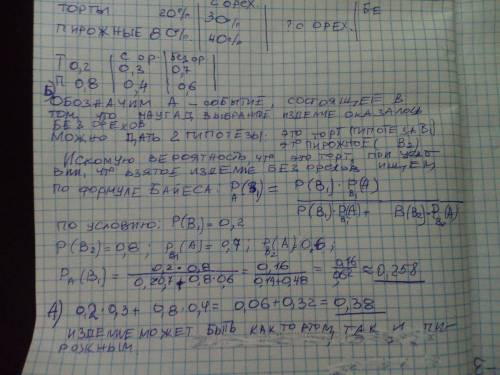 С ОРЕХ.
ТОРТЫ 20% 30% БЕ
ПИРОЖНЫЕ 80% 40% ОРЕХ.
С ОР. БЕЗ ОР.
Т 0,2 0,3 0,7
П 0,8 0,4 0,6
Б)
ОБОЗНАЧИМ А - СОБЫТИЕ, СОСТОЯЩЕЕ В
ТОМ, ЧТО НАУГАД ВЫБРАННОЕ ИЗДЕЛИЕ ОКАЗАЛОСЬ
БЕЗ ОРЕХОВ
МОЖНО ДАТЬ 2 ГИПОТЕЗЫ: ЭТО ТОРТ (ГИПОТЕЗА B1)
ЭТО ПИРОЖНОЕ (B2)
ИСКОМУЮ ВЕРОЯТНОСТЬ, ЧТО ЭТО ТОРТ, ПРИ УСЛО
ВИИ, ЧТО ВЗЯТОЕ ИЗДЕЛИЕ БЕЗ ОРЕХОВ ИЩЕМ
ПО ФОРМУЛЕ БАЙЕСА: P_A(B1) = P(B1)·P_B1(A) / P(B1)·P_B1(A) + P(B2)·P_B2(A)
ПО УСЛОВИЮ: P(B1) = 0,2
P(B2) = 0,8; P_B1(A) = 0,7; P_B2(A) 0,6;
P_A(B1) = 0,2·0,8 / 0,2·0,7 + 0,8·0,6 = 0,16 / 0,14+0,48 = 0,16 / 0,62 ≈ 0,258
А) 0,2·0,3 + 0,8·0,4 = 0,06 + 0,32 = 0,38
ИЗДЕЛИЕ МОЖЕТ БЫТЬ КАК ТОРТОМ, ТАК И ПИ-
РОЖНЫМ